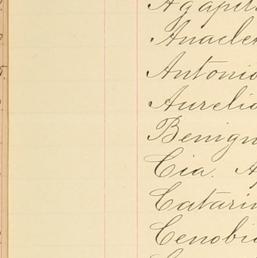 Agapit
Anacle
Antonio
Aurelio
Benign
Cia. A
Catarin
Cenobi